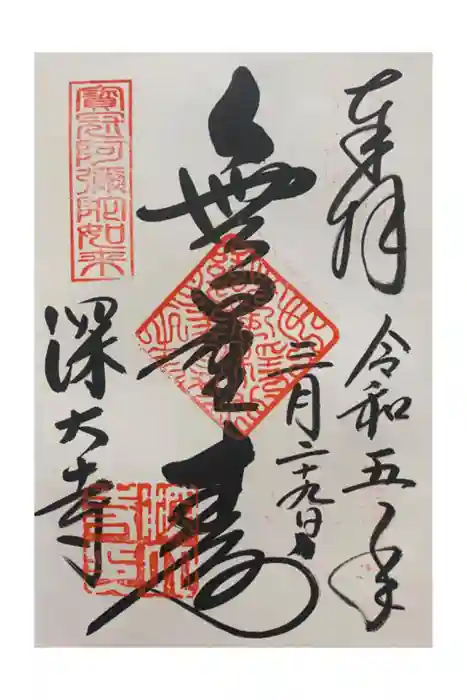 奉拝
令和五年
三月二十九日
無量壽
寶冠阿彌陀如来
深大寺